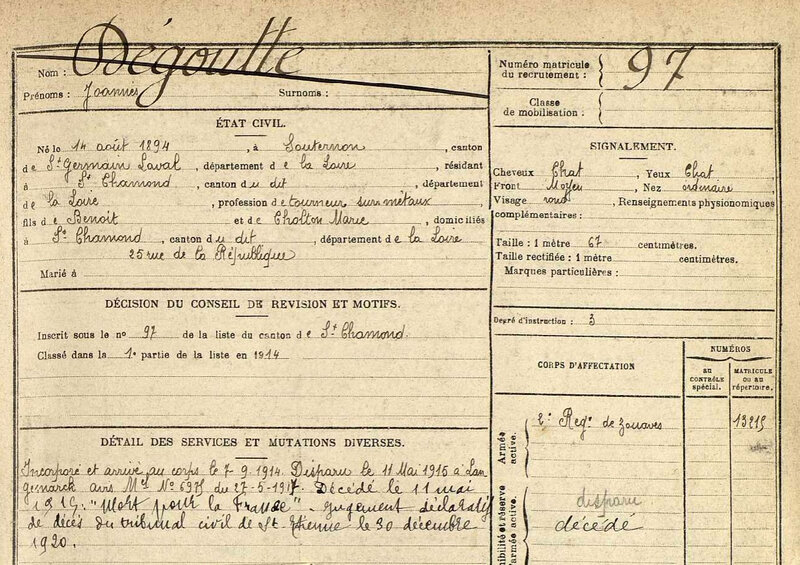 Nom : Dégoutte
Prénoms : Joannès Surnoms :
Numéro matricule du recrutement : 97
Classe de mobilisation :
ÉTAT CIVIL.
Né le 14 août 1894, à Souternon, canton
de St Germain Laval, département de la Loire, résidant
à St Chamond, canton du dit, département
de la Loire, profession de tourneur sur métaux,
fils de Benoit et de Cholton Marie, domiciliés
à St Chamond, canton du dit, département de la Loire
25 rue de la République
Marié à
SIGNALEMENT.
Cheveux Chat, Yeux Chat.
Front Moyen, Nez ordinaire
Visage rond, Renseignements physionomiques
complémentaires :
Taille : 1 mètre 67 centimètres.
Taille rectifiée : 1 mètre centimètres.
Marques particulières :
Degré d'instruction : 3
DÉCISION DU CONSEIL DE REVISION ET MOTIFS.
Inscrit sous le no 97 de la liste du canton de St Chamond.
Classé dans la 1e partie de la liste en 1914
CORPS D'AFFECTATION
NUMÉROS
AU CONTRÔLE spécial.
MATRICULE OU AU répertoire.
Armée active.
2e Regt de zouaves 13215
DÉTAIL DES SERVICES ET MUTATIONS DIVERSES.
Incorporé et arrivé au corps le 7-9-1914. Disparu le 11 Mai 1915 à Lan
gemarck avis Mel No 6975 du 27-5-1917. Décédé le 11 mai
1915. "Mort pour la France". Jugement déclaratif
de décès du tribunal civil de St Etienne le 30 décembre
1920.
et réserve
armée active.
disparu
décédé